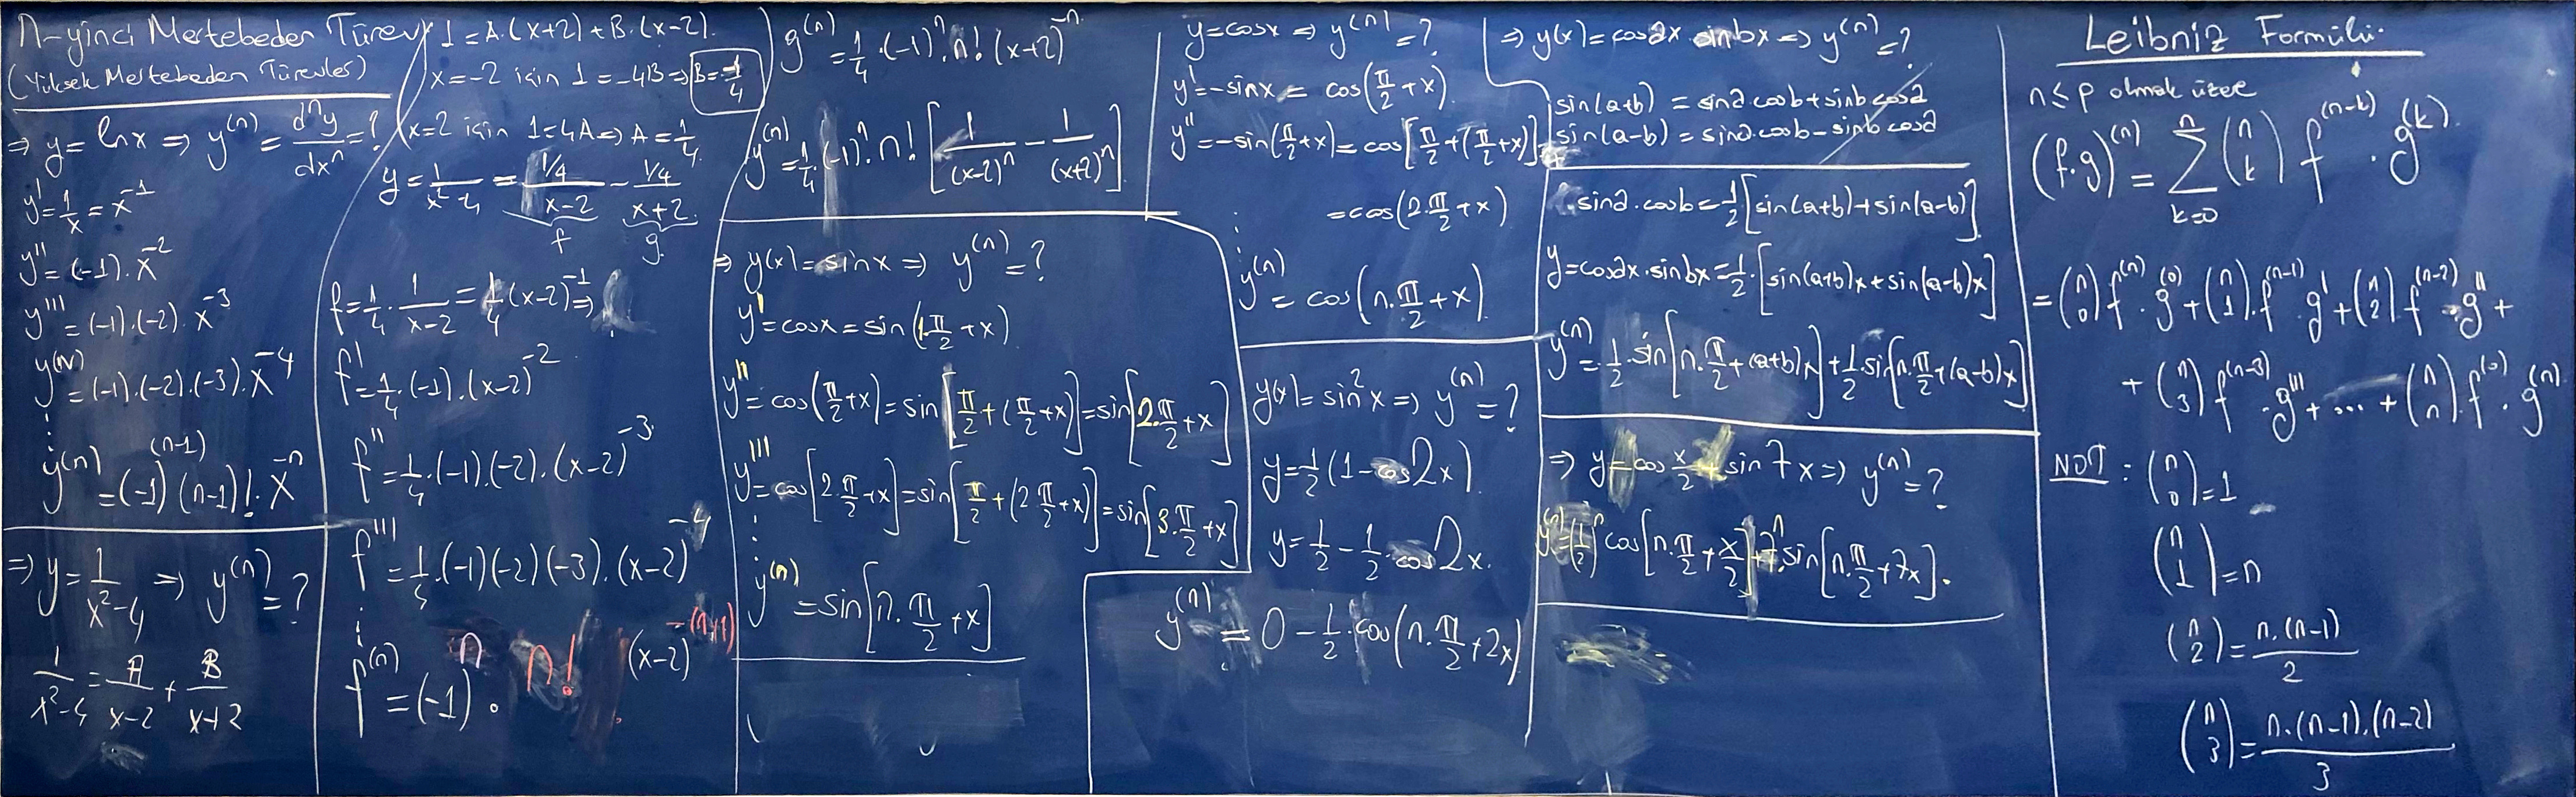 n-yinci Mertebeden Türev
(Yüksek Mertebeden Türevler)
⇒ y = lnx ⇒ y^(n) = d^n y / dx^n = ?
y' = 1/x = x^-1
y'' = (-1).x^-2
y''' = (-1).(-2).x^-3
y^(IV) = (-1).(-2).(-3).x^-4
⋮
y^(n) = (-1)^(n-1) (n-1)!.x^-n
⇒ y = 1/(x²-4) ⇒ y^(n) = ?
1/(x²-4) = A/(x-2) + B/(x+2)
1 = A.(x+2) + B.(x-2).
x = -2 için 1 = -4B ⇒ B = -1/4
x = 2 için 1 = 4A ⇒ A = 1/4
y = 1/(x²-4) = (1/4)/(x-2) - (1/4)/(x+2)
f g
f = 1/4 . 1/(x-2) = 1/4 (x-2)^-1 ⇒
f' = 1/4.(-1).(x-2)^-2
f'' = 1/4.(-1).(-2).(x-2)^-3
f''' = 1/4.(-1)(-2)(-3).(x-2)^-4
⋮
f^(n) = (-1)^n . n! (x-2)^-(n+1)
g^(n) = 1/4 .(-1)^n.n! (x+2)^-n
y^(n) = 1/4.(-1)^n.n! [1/(x-2)^n - 1/(x+2)^n]
⇒ y(x) = sinx ⇒ y^(n) = ?
y' = cosx = sin(1.π/2 + x)
y'' = cos(π/2 + x) = sin[π/2 + (π/2 + x)] = sin[2.π/2 + x]
y''' = cos[2.π/2 + x] = sin[π/2 + (2.π/2 + x)] = sin[3.π/2 + x]
⋮
y^(n) = sin[n.π/2 + x]
y = cosx ⇒ y^(n) = ?
y' = -sinx = cos(π/2 + x)
y'' = -sin(π/2 + x) = cos[π/2 + (π/2 + x)]
= cos(2.π/2 + x)
⋮
y^(n) = cos(n.π/2 + x)
y(x) = sin²x ⇒ y^(n) = ?
y = 1/2 (1 - cos2x)
y = 1/2 - 1/2.cos2x.
y^(n) = 0 - 1/2.cos(n.π/2 + 2x)
⇒ y(x) = cosax sinbx ⇒ y^(n) = ?
sin(a+b) = sina.cosb + sinb cosa
sin(a-b) = sina.cosb - sinb cosa
sina.cosb = 1/2 [sin(a+b) + sin(a-b)]
y = cosax.sinbx = 1/2.[sin(a+b)x + sin(a-b)x]
y^(n) = 1/2.sin[n.π/2 + (a+b)x] + 1/2.sin[n.π/2 + (a-b)x]
⇒ y = cos x/2 + sin7x ⇒ y^(n) = ?
y^(n) = (1/2)^n cos[n.π/2 + x/2] + 7^n.sin[n.π/2 + 7x].
Leibniz Formülü.
n ≤ p olmak üzere
(f.g)^(n) = Σ_{k=0}^{n} (n k) f^(n-k) . g^(k).
= (n 0) f^(n).g^(0) + (n 1).f^(n-1).g' + (n 2) f^(n-2).g'' +
+ (n 3) f^(n-3).g''' + ... + (n n).f^(0).g^(n).
NOT : (n 0) = 1
(n 1) = n
(n 2) = n.(n-1)/2
(n 3) = n.(n-1).(n-2)/3